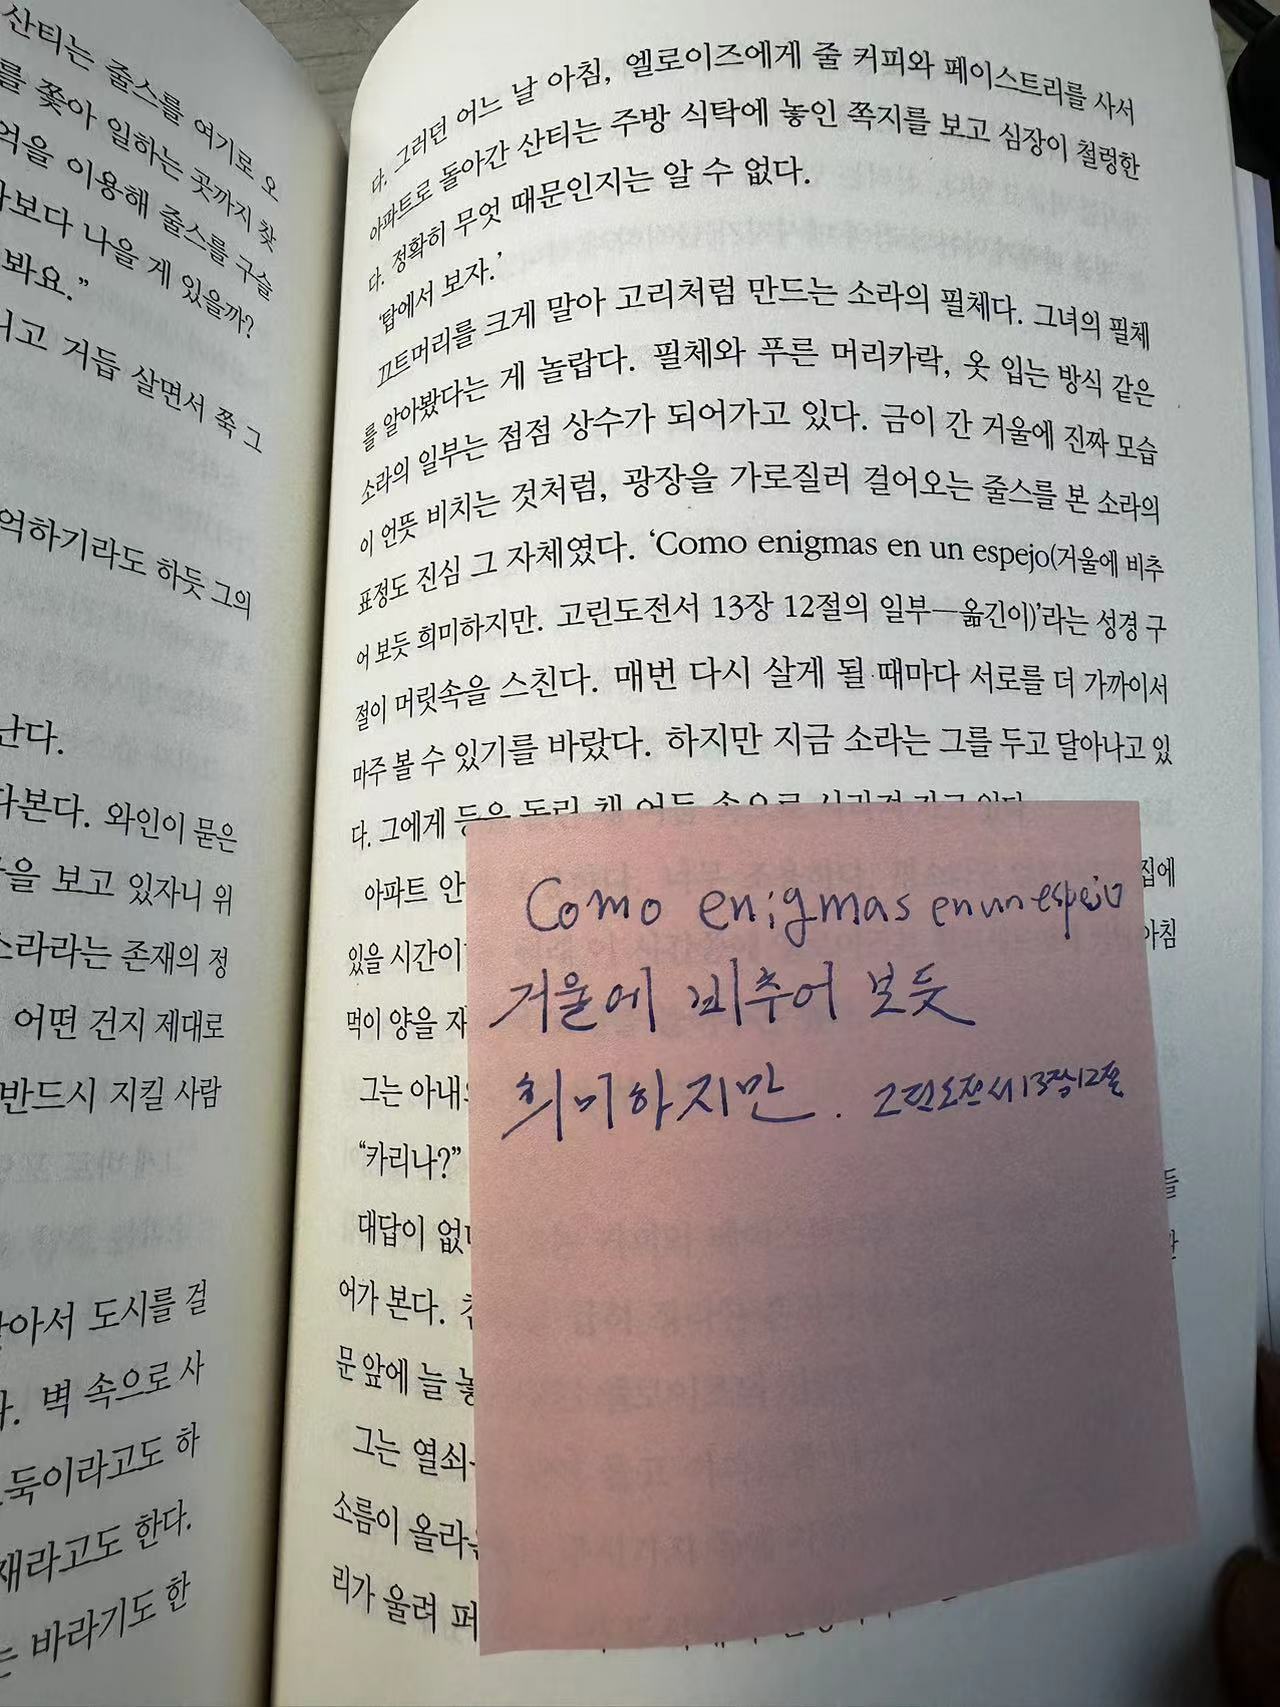 산티는 줄스를 여기로 오
를 쫓아 일하는 곳까지 찾
억을 이용해 줄스를 구슬
보다 나을 게 있을까?
봐요.”
고 거듭 살면서 쭉 그
억하기라도 하듯 그의
난다.
다본다. 와인이 묻은
을 보고 있자니 위
소라라는 존재의 정
어떤 건지 제대로
반드시 지킬 사람
아서 도시를 걸
벽 속으로 사
둑이라고도 하
재라고도 한다.
는 바라기도 한
다. 그러던 어느 날 아침, 엘로이즈에게 줄 커피와 페이스트리를 사서
아파트로 돌아간 산티는 주방 식탁에 놓인 쪽지를 보고 심장이 철렁한
다. 정확히 무엇 때문인지는 알 수 없다.
‘탑에서 보자.’
끄트머리를 크게 말아 고리처럼 만드는 소라의 필체다. 그녀의 필체
를 알아봤다는 게 놀랍다. 필체와 푸른 머리카락, 옷 입는 방식 같은
소라의 일부는 점점 상수가 되어가고 있다. 금이 간 거울에 진짜 모습
이 언뜻 비치는 것처럼, 광장을 가로질러 걸어오는 줄스를 본 소라의
표정도 진심 그 자체였다. ‘Como enigmas en un espejo(거울에 비추
어 보듯 희미하지만. 고린도전서 13장 12절의 일부—옮긴이)’라는 성경 구
절이 머릿속을 스친다. 매번 다시 살게 될 때마다 서로를 더 가까이서
마주 볼 수 있기를 바랐다. 하지만 지금 소라는 그를 두고 달아나고 있
다. 그에게 등을 돌린 채 어둠 속으로
아파트 안 집에
있을 시간이 아침
먹이 양을 자
그는 아내
“카리나?”
대답이 없
어가 본다.
문 앞에 늘 놓
그는 열쇠
소름이 올라
리가 울려 퍼
Como enigmas en un espejo
거울에 비추어 보듯
희미하지만. 고린도전서 13장 12절